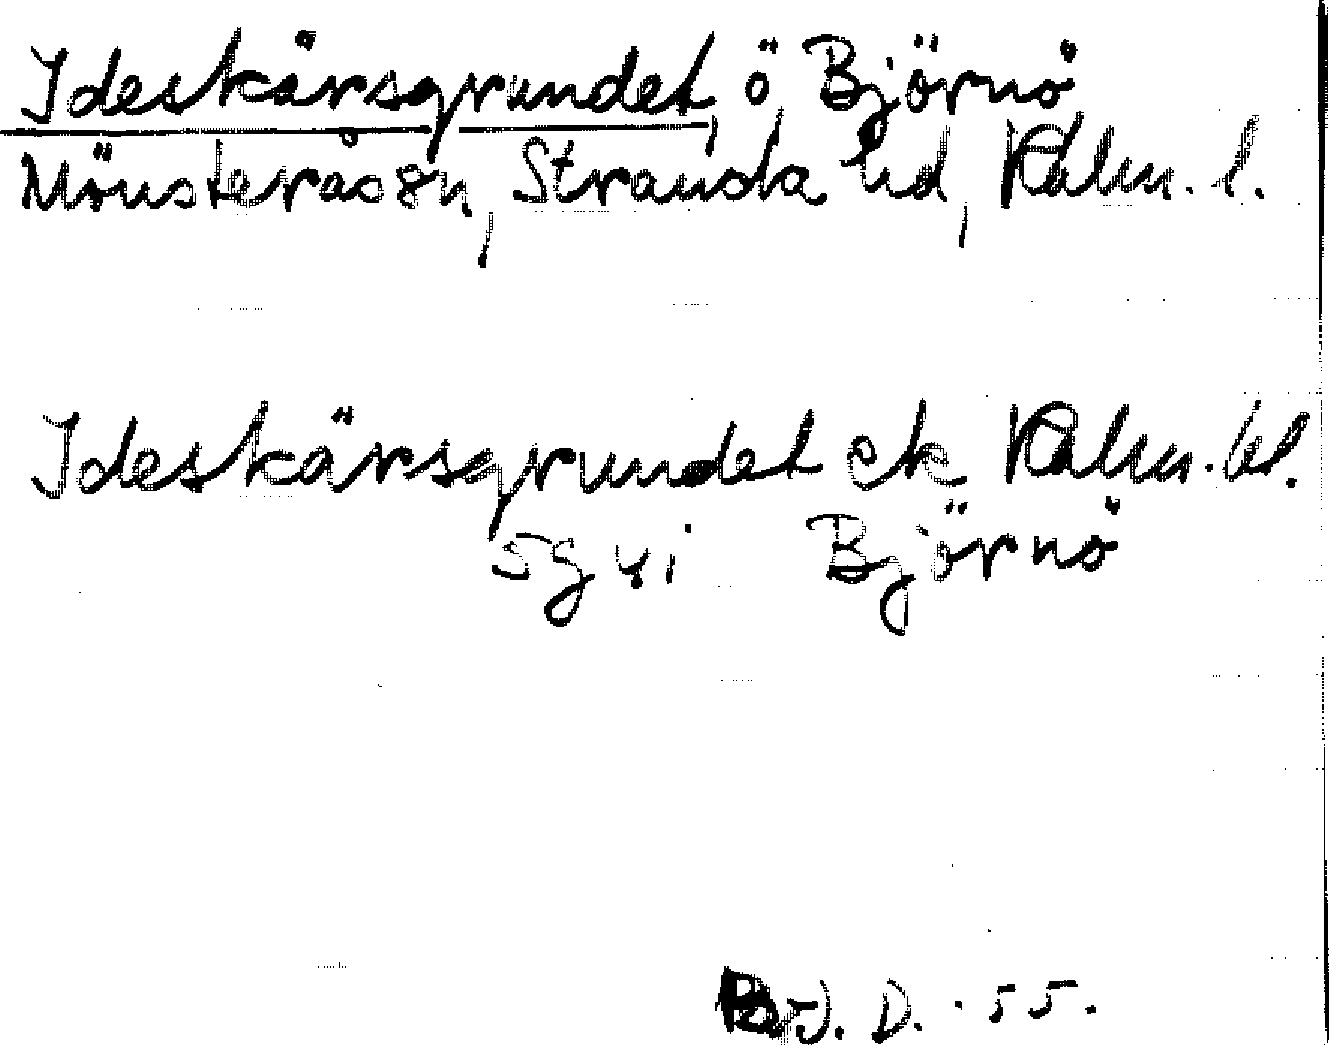 Ideskärsgrundet, ö, Björnö,
Mönsterås sn, Stranda hd, Kalm. l.
Ideskärsgrundet ek. Kalm. bl.
5g yi Björnö
D. -55.